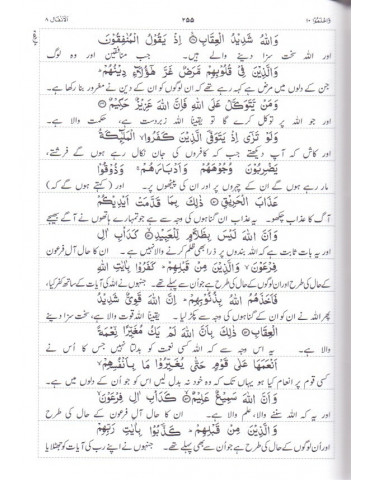 واعلموا ١٠ ٢٥٥ الانفال ٨
وَاللّٰهُ شَدِيْدُ الْعِقَابِ ۝ اِذْ يَقُوْلُ الْمُنٰفِقُوْنَ
اور اللہ سخت سزا دینے والے ہیں۔ جب منافقین اور وہ لوگ
وَالَّذِيْنَ فِيْ قُلُوْبِهِمْ مَّرَضٌ غَرَّ هٰٓؤُلَآءِ دِيْنُهُمْ ؕ
جن کے دلوں میں مرض ہے کہہ رہے تھے کہ ان لوگوں کو ان کے دین نے مغرور بنا رکھا ہے۔
وَمَنْ يَّتَوَكَّلْ عَلَى اللّٰهِ فَاِنَّ اللّٰهَ عَزِيْزٌ حَكِيْمٌ ۝
اور جو اللہ پر توکل کرے گا تو یقیناً اللہ زبردست ہے، حکمت والا ہے۔
وَلَوْ تَرٰٓى اِذْ يَتَوَفَّى الَّذِيْنَ كَفَرُوا ۙ الْمَلٰٓئِكَةُ
اور کاش کہ آپ دیکھتے جب کہ کافروں کی جان نکال رہے ہوں گے فرشتے،
يَضْرِبُوْنَ وُجُوْهَهُمْ وَاَدْبَارَهُمْ ۚ وَذُوْقُوْا
مار رہے ہوں گے ان کے چہروں پر اور ان کی پیٹھوں پر۔ اور (کہتے ہوں گے کہ)
عَذَابَ الْحَرِيْقِ ۝ ذٰلِكَ بِمَا قَدَّمَتْ اَيْدِيْكُمْ
آگ کا عذاب چکھو۔ یہ عذاب ان گناہوں کی وجہ سے ہے جو تمہارے ہاتھوں نے آگے بھیجے
وَاَنَّ اللّٰهَ لَيْسَ بِظَلَّامٍ لِّلْعَبِيْدِ ۝ كَدَاْبِ اٰلِ
اور یہ بات ثابت ہے کہ اللہ بندوں پر ذرا بھی ظلم کرنے والا نہیں ہے۔ ان کا حال آل فرعون
فِرْعَوْنَ ۙ وَالَّذِيْنَ مِنْ قَبْلِهِمْ ؕ كَفَرُوْا بِاٰيٰتِ اللّٰهِ
کے حال کی طرح اور ان لوگوں کے حال کی طرح ہے جو ان سے پہلے تھے۔ جنہوں نے اللہ کی آیات کے ساتھ کفر کیا،
فَاَخَذَهُمُ اللّٰهُ بِذُنُوْبِهِمْ ؕ اِنَّ اللّٰهَ قَوِيٌّ شَدِيْدُ
پھر اللہ نے ان کو ان کے گناہوں کی وجہ سے پکڑ لیا۔ یقیناً اللہ قوت والا ہے، سخت سزا دینے
الْعِقَابِ ۝ ذٰلِكَ بِاَنَّ اللّٰهَ لَمْ يَكُ مُغَيِّرًا نِّعْمَةً
والا ہے۔ یہ اس وجہ سے کہ اللہ کسی نعمت کو بدلتا نہیں جس کا اس نے
اَنْعَمَهَا عَلٰى قَوْمٍ حَتّٰى يُغَيِّرُوْا مَا بِاَنْفُسِهِمْ ۙ
کسی قوم پر انعام کیا ہو یہاں تک کہ وہ خود نہ بدل لیں اس کو جو اُن کے دلوں میں ہے۔
وَاَنَّ اللّٰهَ سَمِيْعٌ عَلِيْمٌ ۝ كَدَاْبِ اٰلِ فِرْعَوْنَ ۙ
اور یہ کہ اللہ سننے والا، علم والا ہے۔ ان کا حال آل فرعون کے حال کی طرح
وَالَّذِيْنَ مِنْ قَبْلِهِمْ ؕ كَذَّبُوْا بِاٰيٰتِ رَبِّهِمْ
اور اُن لوگوں کے حال کی طرح ہے جو اُن سے پہلے تھے۔ جنہوں نے اپنے رب کی آیات کو جھٹلایا